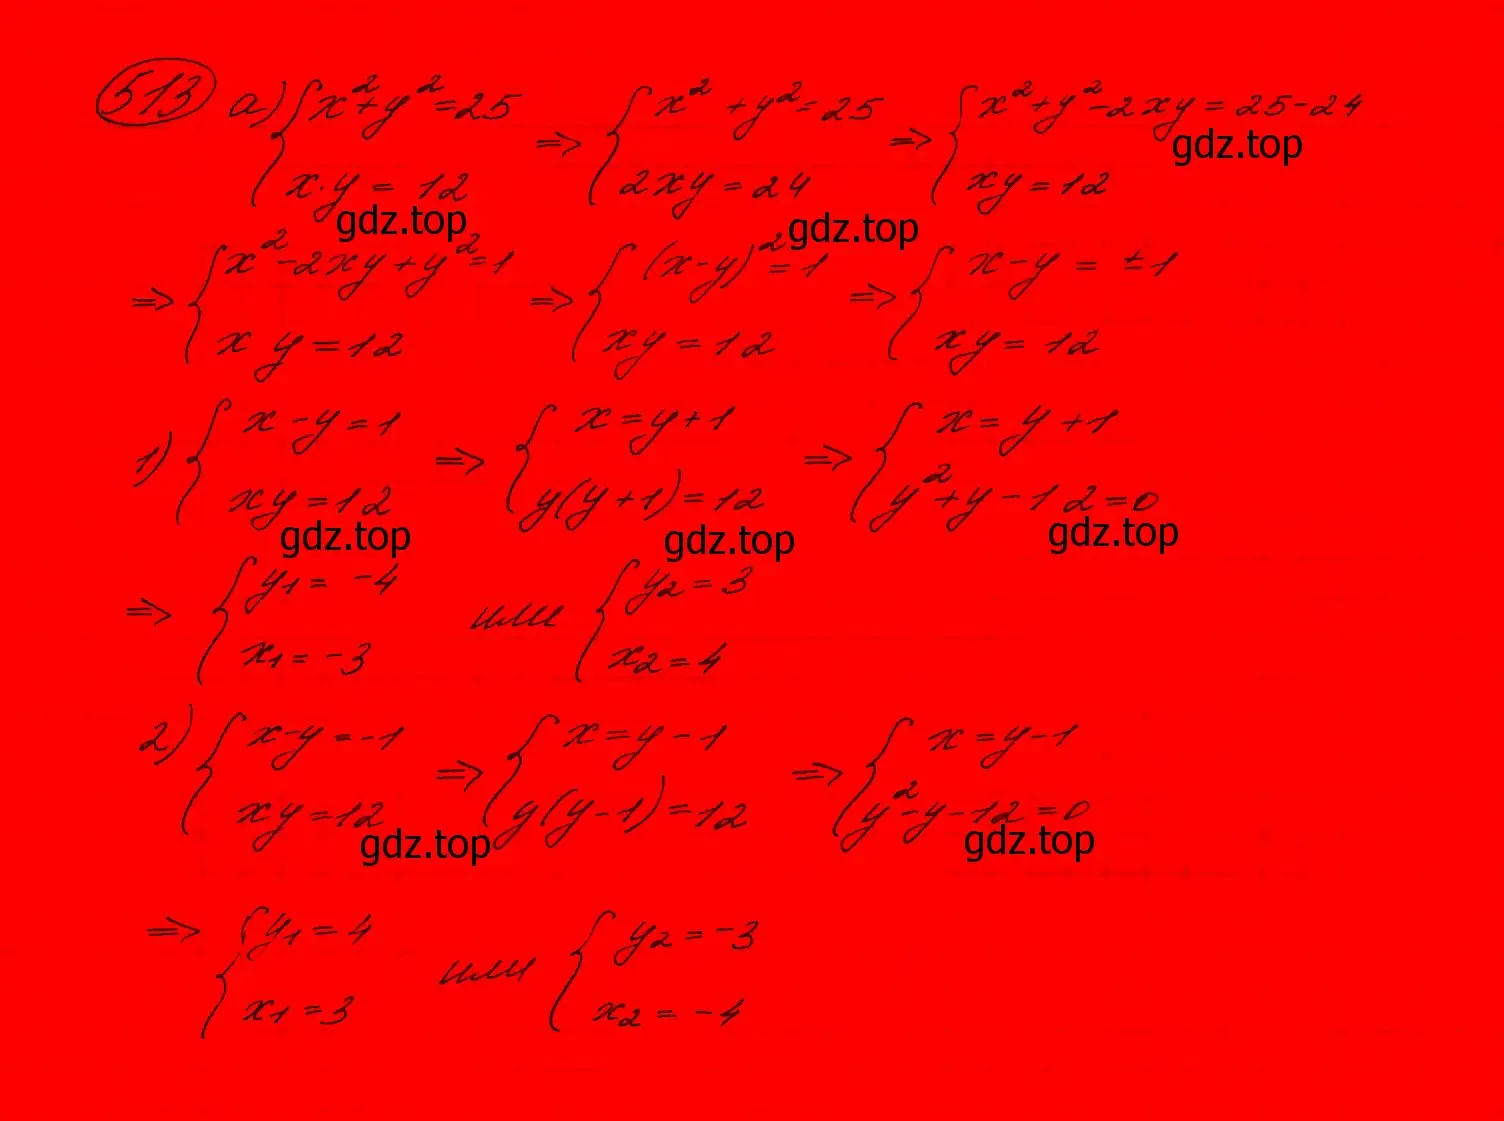 513 а) { x²+y²=25 => { x²+y²=25 => { x²+y²-2xy=25-24
x·y=12 2xy=24 xy=12
gdz.top gdz.top gdz.top
=> { x²-2xy+y²=1 => { (x-y)²=1 => { x-y=±1
xy=12 xy=12 xy=12
1) { x-y=1 => { x=y+1 => { x=y+1
xy=12 y(y+1)=12 y²+y-12=0
gdz.top gdz.top gdz.top
=> { y₁=-4 или { y₂=3
x₁=-3 x₂=4
2) { x-y=-1 => { x=y-1 => { x=y-1
xy=12 y(y-1)=12 y²-y-12=0
gdz.top gdz.top
=> { y₁=4 или { y₂=-3
x₁=3 x₂=-4